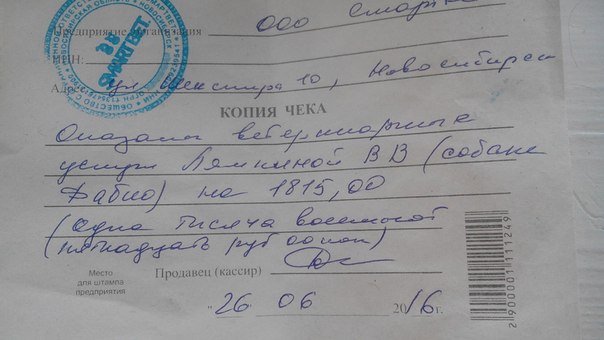 Предприятие, организация ООО Смарт
ИНН:
SMART ВЕТ
Адрес ул Шекспира 10, Новосибирск
КОПИЯ ЧЕКА
Оказаны ветеринарные
услуги Лямкиной В В (собаке
Фабио) на 1815,00
(Одна тысяча восемьсот
(пятнадцать руб 00 коп)
Продавец (кассир)
Место
для штампа
предприятия
"26 06 2016г.
2 900001 111249